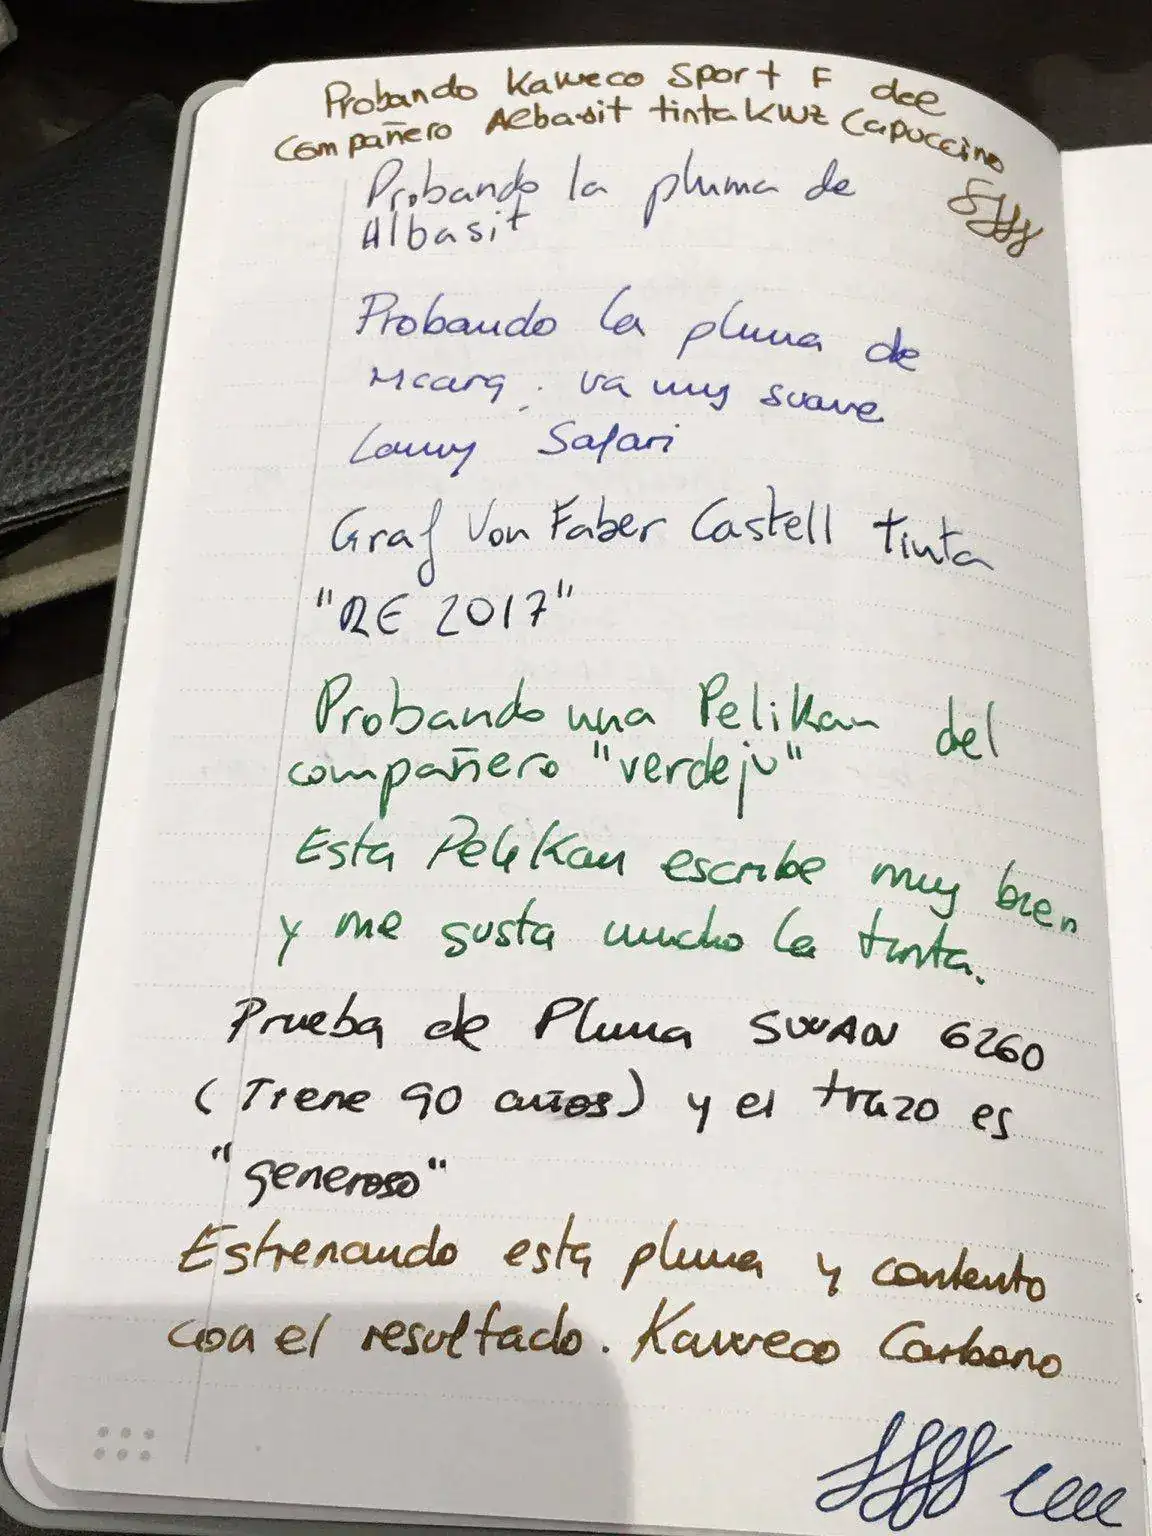 Probando Kaweco Sport F del
compañero Albasit tinta KWZ Capuccino
Probando la pluma de
Albasit
Probando la pluma de
Mcarq. va muy suave
Lamy Safari
Graf Von Faber Castell tinta
"RE 2017"
Probando una Pelikan del
compañero "verdeju"
Esta Pelikan escribe muy bien
y me gusta mucho la tinta.
Prueba de Pluma SWAN 6260
(Tiene 90 años) y el trazo es
"generoso"
Estrenando esta pluma y contento
con el resultado. Kaweco Carbono